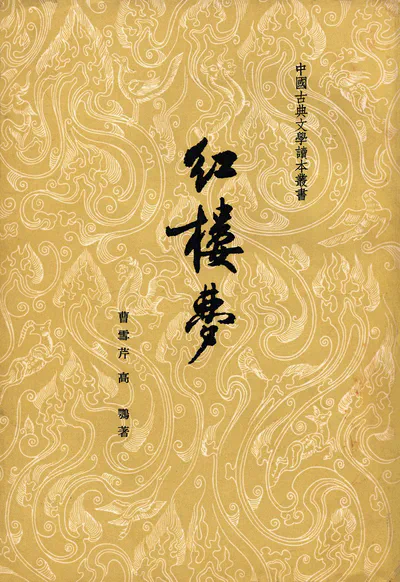 中國古典文學讀本叢書
红楼梦
曹雪芹 高 鶚著